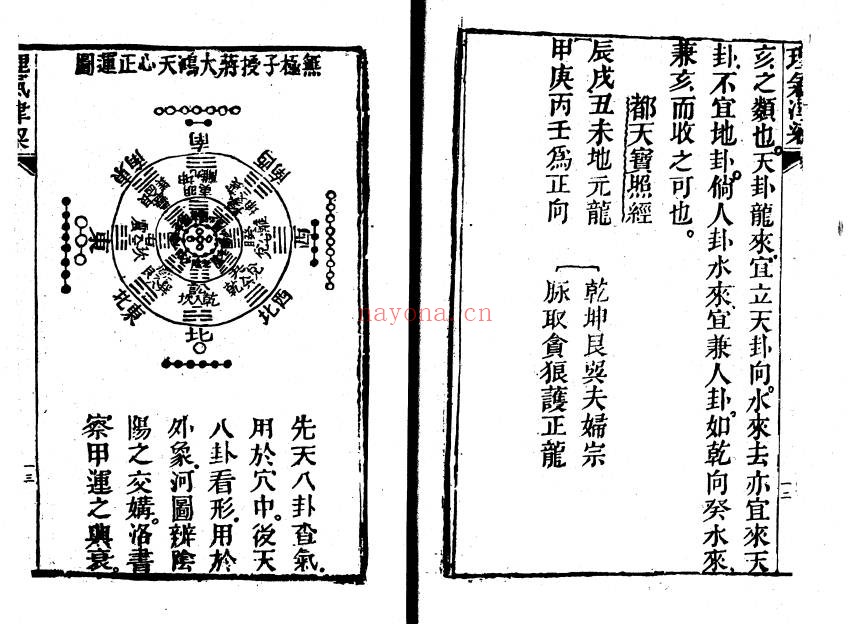 理氣津梁
亥之類也。天卦龍來，宜立天卦向。水來去亦宜來天
卦，不宜地卦。倘人卦水來，宜兼人卦。如乾向癸水來，
兼亥而收之可也。
都天寶照經
辰戌丑未地元龍
乾坤艮巽夫婦宗
甲庚丙壬爲正向
脉取貪狼護正龍
一二
無極子授蔣大鴻天心正運圖
南
東南
西南
東
西
東北
西北
北
先天八卦查氣，
用於穴中。後天
八卦看形，用於
外象。河圖辨陰
陽之交媾。洛書
察甲運之興衰。
理氣津梁
一三
nayona.cn